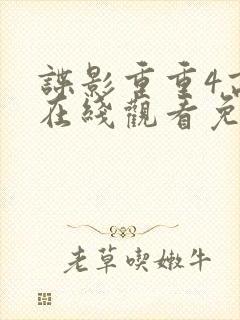 諜影重重4
在綫觀看免
老草喫嫩牛